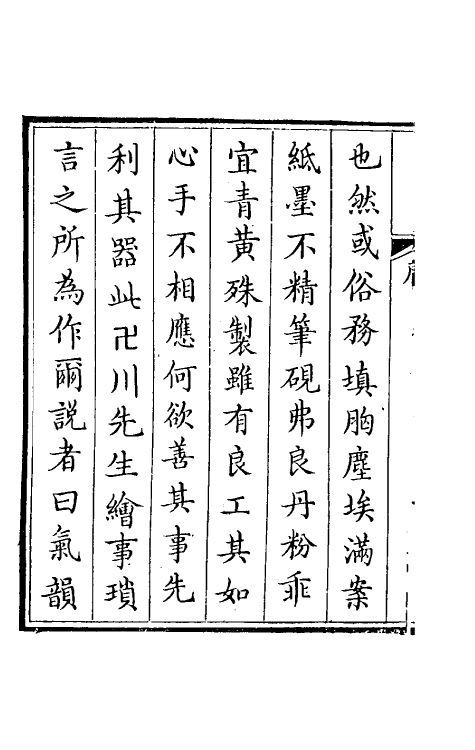 也然或俗務填胸塵埃滿案
紙墨不精筆硯弗良丹粉乖
宜青黃殊製雖有良工其如
心手不相應何欲善其事先
利其器此卍川先生繪事瑣
言之所為作爾説者曰氣韻